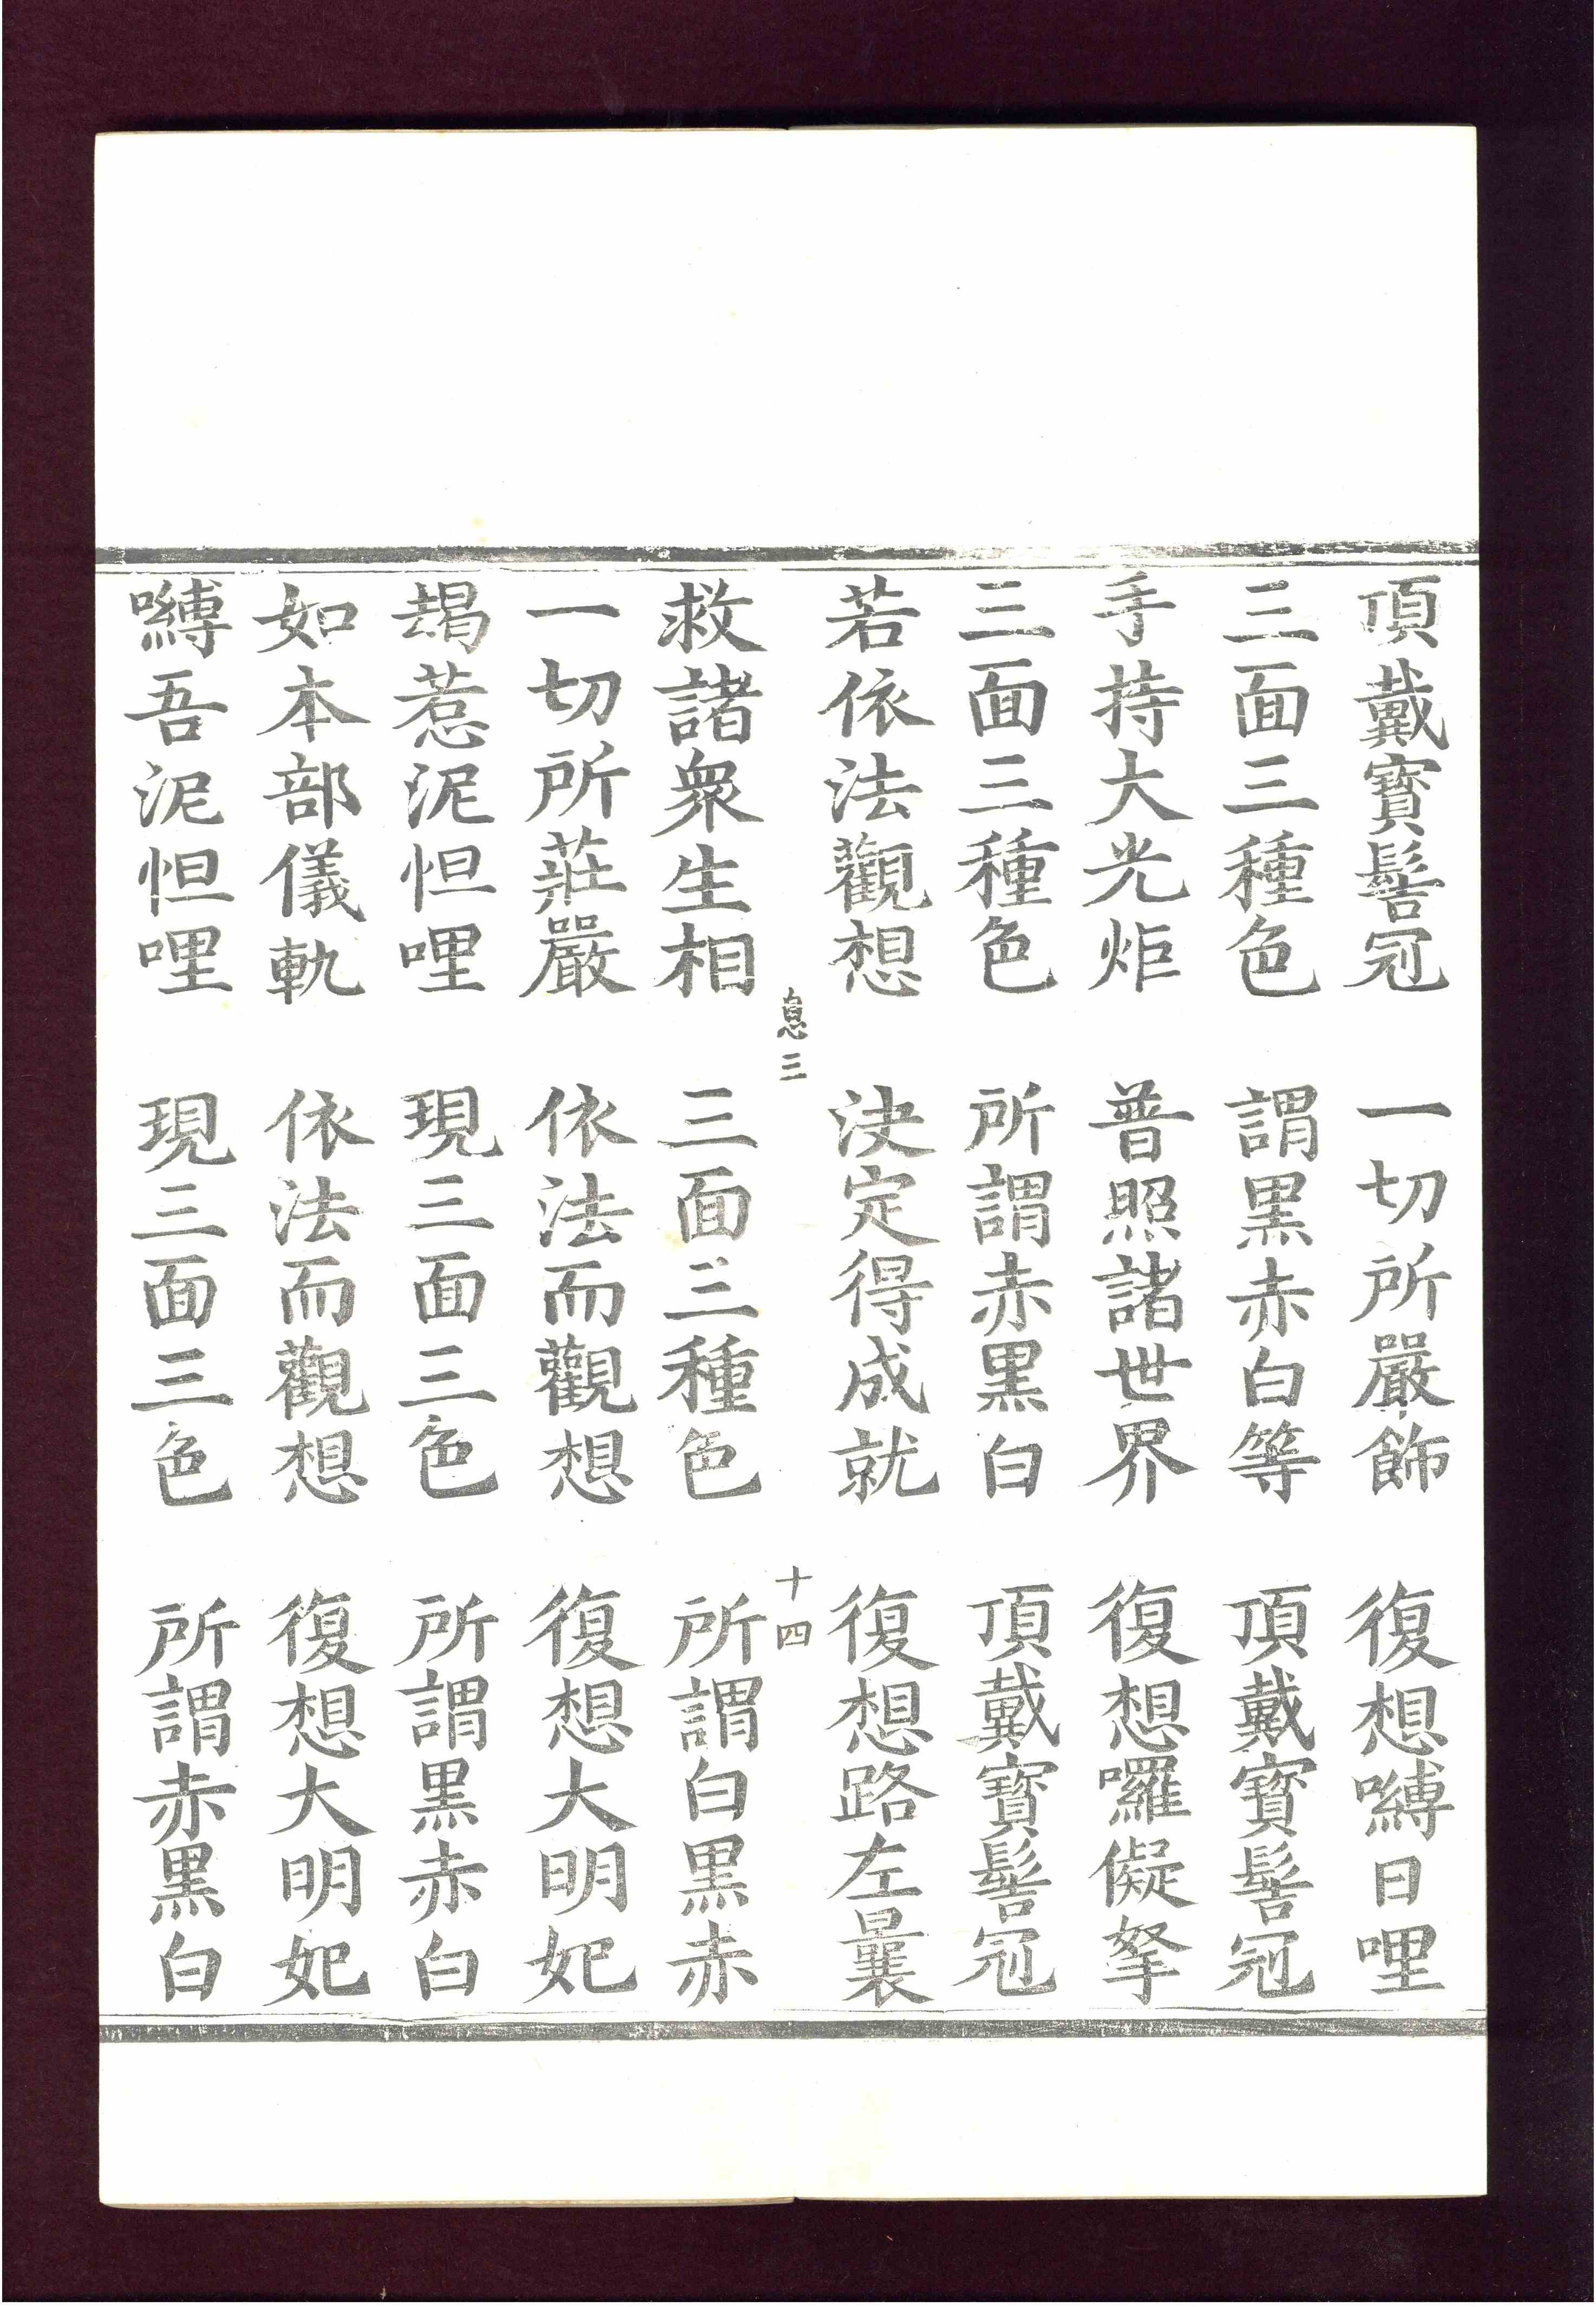 頂戴寶髻冠　一切所嚴飾　復想嚩日哩
三面三種色　謂黑赤白等　頂戴寶髻冠
手持大光炬　普照諸世界　復想囉儗拏
三面三種色　所謂赤黑白　頂戴寶髻冠
若依法觀想　決定得成就　復想路左曩
息三　十四
救諸衆生相　三面三種色　所謂白黑赤
一切所莊嚴　依法而觀想　復想大明妃
朅惹泥怛哩　現三面三色　所謂黑赤白
如本部儀軌　依法而觀想　復想大明妃
嚩吾泥怛哩　現三面三色　所謂赤黑白